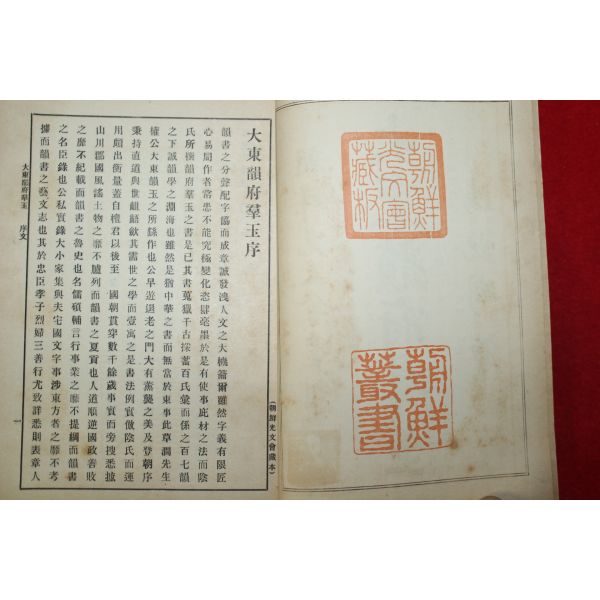 朝鮮
光文會
藏板
朝鮮
叢書
(朝鮮光文會藏本)
大東韻府羣玉序
韻書之分聲配字協而成章誠發洩人文之大機籥爾雖然字義有限匠
心易局作者常患不能究極變化恣肆毫墨於是有使事庇材之法而陰
氏所樹韻府羣玉之書是已其書蒐獵千古採蓄百氏彙而係之百七韻
之下誠韻學之淵海也雖然是猶中華之書而無當於東事此草澗先生
權公大東韻玉之所繇作也公早遊退老之門大有薰襲之美及登朝序
秉持直道與世齟齬歛其需世之學而壹寓之是書法例實倣陰氏而運
用頗出衡量蓋自檀君以後至 國朝貫穿數千餘歲事實而旁搜悉摭
山川郡國風謠土物之靡不臚列而韻書之夏貢也人道順逆國政善敗
之靡不紀載而韻書之魯史也名儒碩輔言行事業之靡不提綱而韻書
之名臣錄也公私實錄大小家集與夫宅國文字事涉東方者之靡不考
據而韻書之藝文志也其於忠臣孝子烈婦三善行尤致詳悉則表章人
大東韻府羣玉 序文
一